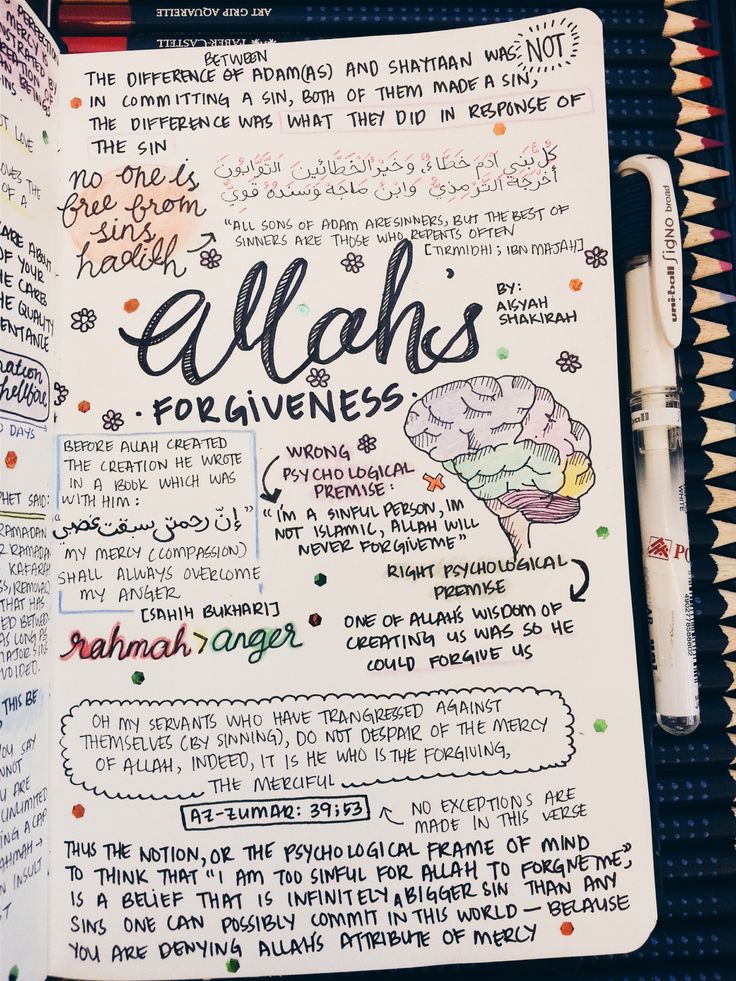 ART GRIP AQUARELLE
FABER-CASTELL
BETWEEN
THE DIFFERENCE OF ADAM(AS) AND SHAYTAAN WAS NOT
IN COMMITTING A SIN, BOTH OF THEM MADE A SIN,
THE DIFFERENCE WAS WHAT THEY DID IN RESPONSE OF
THE SIN
no one is
free from
sins
hadith
كُلُّ بَنِي آدَمَ خَطَّاءٌ، وَخَيْرُ الْخَطَّائِينَ التَّوَّابُونَ
أَخْرَجَهُ التِّرْمِذِيُّ وَابْنُ مَاجَهْ وَسَنَدُهُ قَوِيٌّ
"ALL SONS OF ADAM ARE SINNERS, BUT THE BEST OF
SINNERS ARE THOSE WHO REPENTS OFTEN
[TIRMIDHI ; IBN MAJAH]
Allah's
BY:
AISYAH
SHAKIRAH
·FORGIVENESS·
BEFORE ALLAH CREATED
THE CREATION HE WROTE
IN A BOOK WHICH WAS
WITH HIM:
"إنّ رحمتي سبقت غضبي"
"MY MERCY (COMPASSION)
SHALL ALWAYS OVERCOME
MY ANGER
[SAHIH BUKHARI]
rahmah > anger
WRONG
PSYCHOLOGICAL
PREMISE:
"I'M A SINFUL PERSON, IM
NOT ISLAMIC, ALLAH WILL
NEVER FORGIVE ME"
RIGHT PSYCHOLOGICAL
PREMISE
ONE OF ALLAH'S WISDOM OF
CREATING US WAS SO HE
COULD FORGIVE US
OH MY SERVANTS WHO HAVE TRANGRESSED AGAINST
THEMSELVES (BY SINNING), DO NOT DESPAIR OF THE MERCY
OF ALLAH, INDEED, IT IS HE WHO IS THE FORGIVING,
THE MERCIFUL
AZ-ZUMAR: 39:53
NO EXCEPTIONS ARE
MADE IN THIS VERSE
THUS THE NOTION, OR THE PSYCHOLOGICAL FRAME OF MIND
TO THINK THAT "I AM TOO SINFUL FOR ALLAH TO FORGIVE ME",
IS A BELIEF THAT IS INFINITELY A BIGGER SIN THAN ANY
SINS ONE CAN POSSIBLY COMMIT IN THIS WORLD — BECAUSE
YOU ARE DENYING ALLAH'S ATTRIBUTE OF MERCY
uni-ball Signo broad
WHITE
PERFECTION
MERCY IS
LOVE
LOVES THE
OF A
CARE ABOUT
OF YOUR
HE CARES
THE QUALITY
hellfire
DAYS
SAID:
RAMADAN
RAMADAN
THAT HAS
AS LONG
THIS BE
YOU SAY
YOU ARE
UNLIMITED
A CAP
INSULT